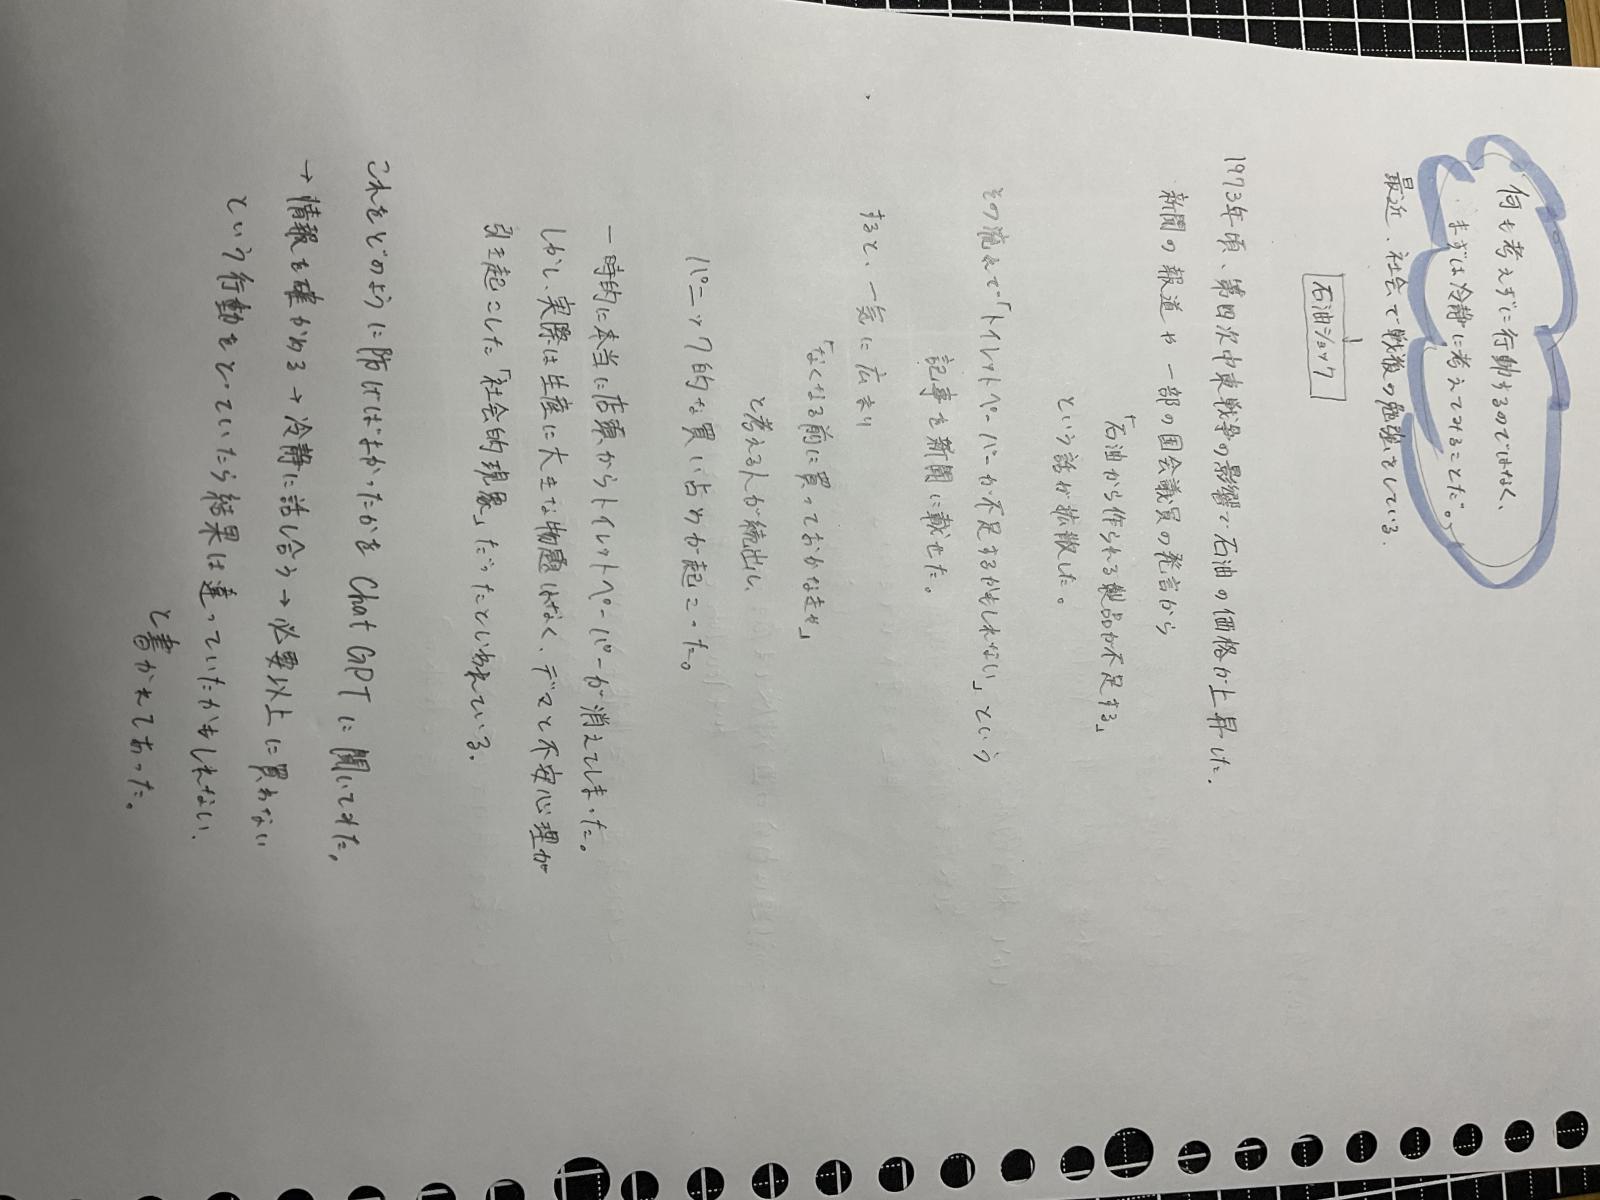 何も考えずに行動するのではなく、
まずは冷静に考えてみることだ。
最近、社会で戦後の勉強をしている。
石油ショック
1973年頃、第四次中東戦争の影響で石油の価格が上昇した。
新聞の報道や一部の国会議員の発言から
「石油から作られる製品が不足する」
という話が拡散した。
その流れで「トイレットペーパーが不足するかもしれない」という
記事を新聞に載せた。
すると、一気に広まり
「なくなる前に買っておかなきゃ」
と考える人が続出し、
パニック的な買い占めが起こった。
一時的に本当に店頭からトイレットペーパーが消えてしまった。
しかし、実際は生産に大きな問題はなく、デマと不安心理が
引き起こした「社会的現象」だったといわれている。
これをどのように防げばよかったかを Chat GPT に聞いてみた。
→情報を確かめる→冷静に話し合う→必要以上に買わない
という行動をとっていたら結果は違っていたかもしれない、
と書かれてあった。